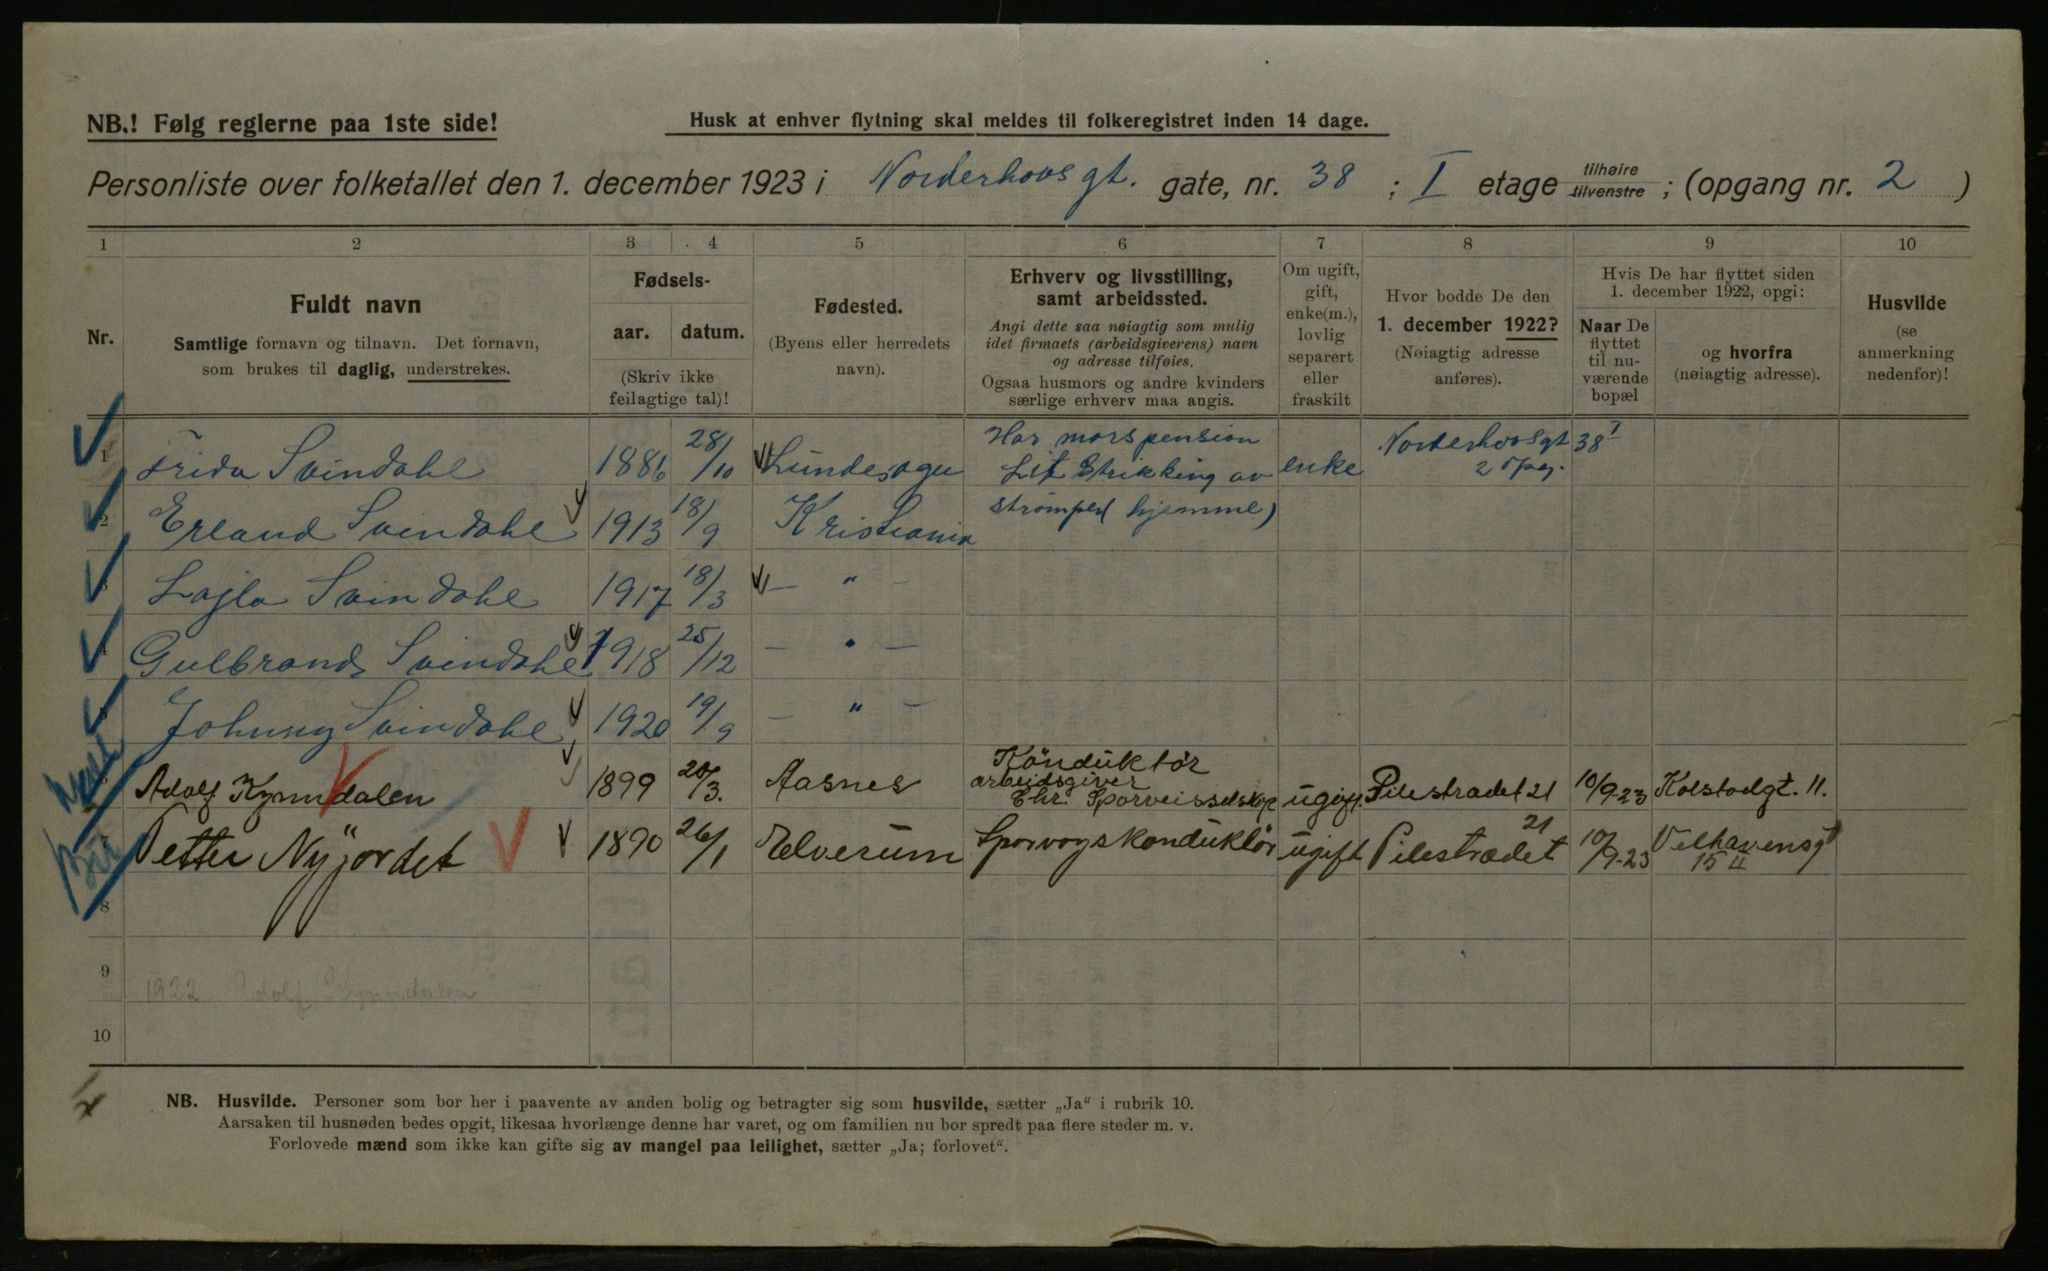 NB.! Følg reglerne paa 1ste side!
Husk at enhver flytning skal meldes til folkeregistret inden 14 dage.
Personliste over folketallet den 1. december 1923 i Norderhovsgt. gate, nr. 38 ; I etage tilhøire tilvenstre ; (opgang nr. 2 )
1 2 3 4 5 6 7 8 9 10
Nr.
Fuldt navn
Samtlige fornavn og tilnavn. Det fornavn,
som brukes til daglig, understrekes.
Fødsels-
aar. datum.
(Skriv ikke
feilagtige tal)!
Fødested.
(Byens eller herredets
navn).
Erhverv og livsstilling,
samt arbeidssted.
Angi dette saa nøiagtig som mulig
idet firmaets (arbeidsgiverens) navn
og adresse tilføies.
Ogsaa husmors og andre kvinders
særlige erhverv maa angis.
Om ugift,
gift,
enke(m.),
lovlig
separert
eller
fraskilt
Hvor bodde De den
1. december 1922?
(Nøiagtig adresse
anføres).
Hvis De har flyttet siden
1. december 1922, opgi:
Naar De
flyttet
til nu-
værende
bopæl
og hvorfra
(nøiagtig adresse).
Husvilde
(se
anmerkning
nedenfor)!
1 Frida Svindahl 1886 28/10 Lundesogn Har mors pension Lit Strikking av enke Norderhovsgt 38 I 2 opg.
2 Erland Svindahl 1913 18/9 Kristiania strømper( hjemme)
3 Lajla Svindahl 1917 18/3 — " —
4 Gulbrand Svindahl 1918 25/12 — " —
5 Johnny Svindahl 1920 19/9 — " —
6 Adolf Kynndalen 1899 20/3. Aasnes Konduktør arbeidsgiver Chr. Sporveisselskap ugift. Pilestrædet 21 10/9-23 Kolstadgt. 11.
7 Petter Nyjordet 1890 26/1 Elverum Sporvogskonduktør ugift Pilestrædet 21 10/9-23 Velhavensgt 15 II
8
9
1922 Adolf Kynndalen
10
NB. Husvilde. Personer som bor her i paavente av anden bolig og betragter sig som husvilde, sætter „Ja" i rubrik 10.
Aarsaken til husnøden bedes opgit, likesaa hvorlænge denne har varet, og om familien nu bor spredt paa flere steder m. v.
Forlovede mænd som ikke kan gifte sig av mangel paa leilighet, sætter „Ja; forlovet".